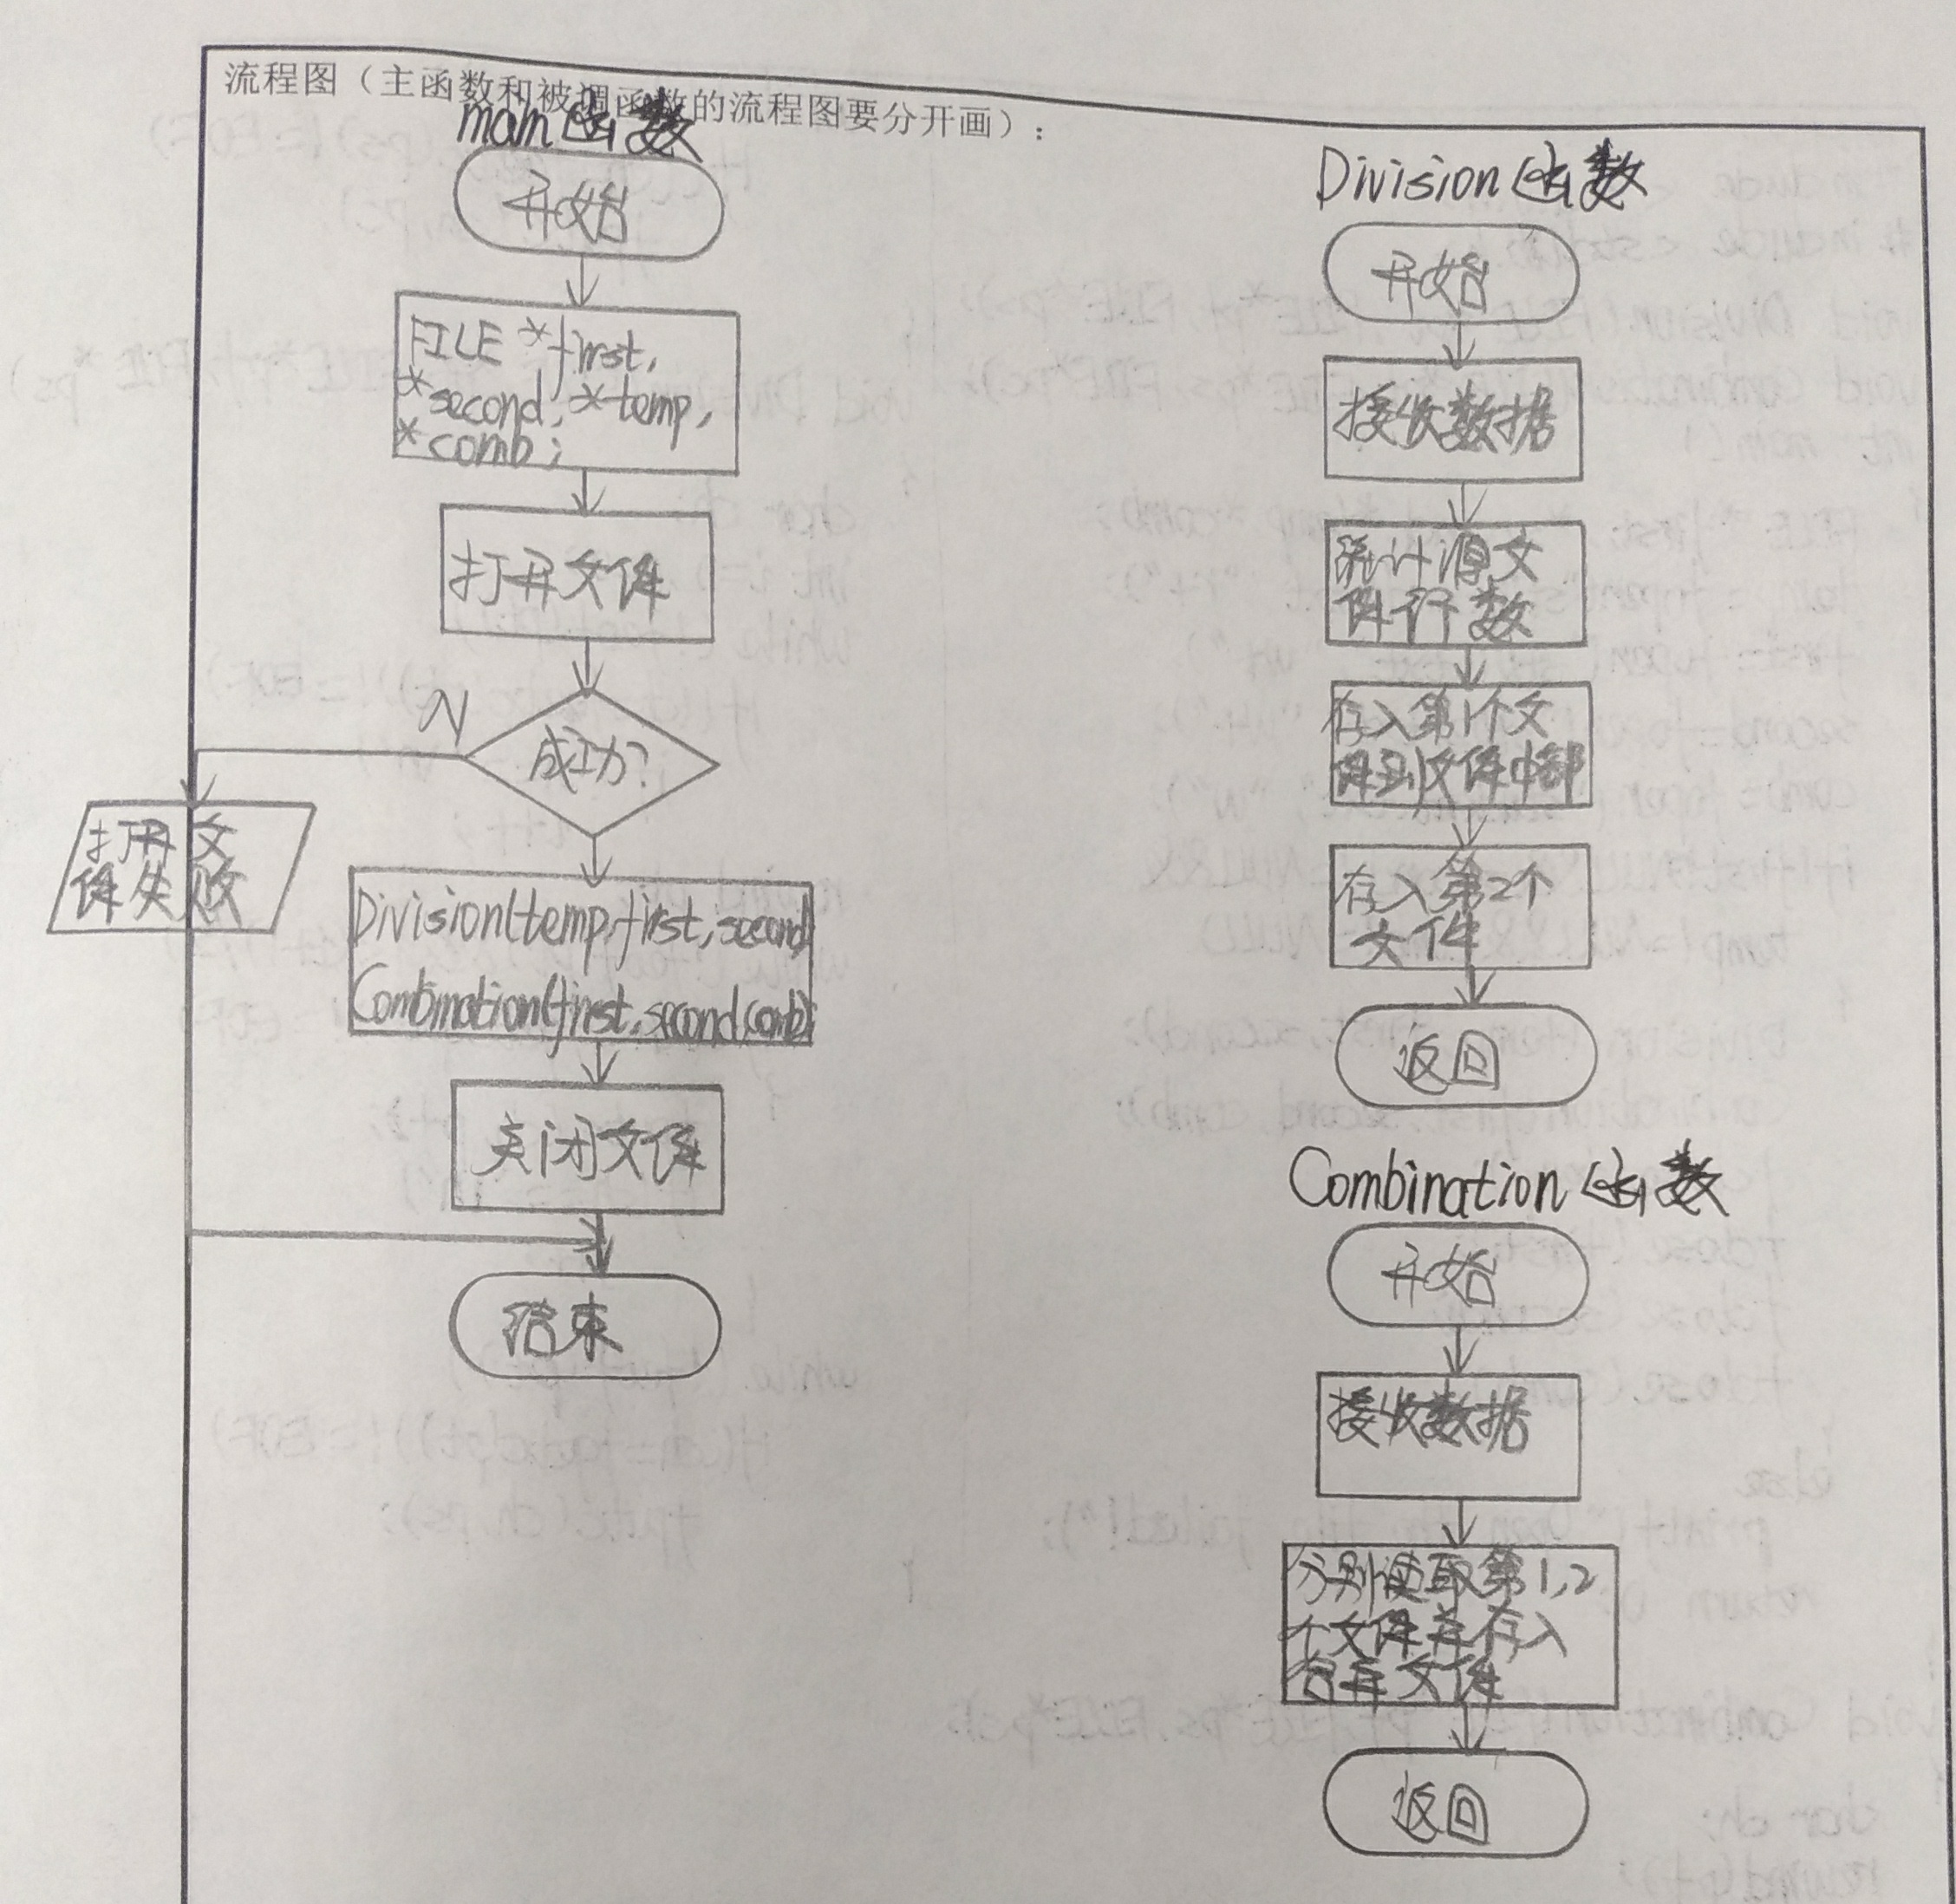 流程图（主函数和被调函数的流程图要分开画）：
main函数
开始
FILE *first,
*second, *temp,
*comb;
打开文件
成功?
N
打开文
件失败
Division(temp,first,second)
Combination(first,second,comb);
关闭文件
结束
Division函数
开始
接收数据
统计源文
件行数
存入第1个文
件到文件中部
存入第2个
文件
返回
Combination函数
开始
接收数据
分别读取第1,2
个文件并存入
合并文件
返回